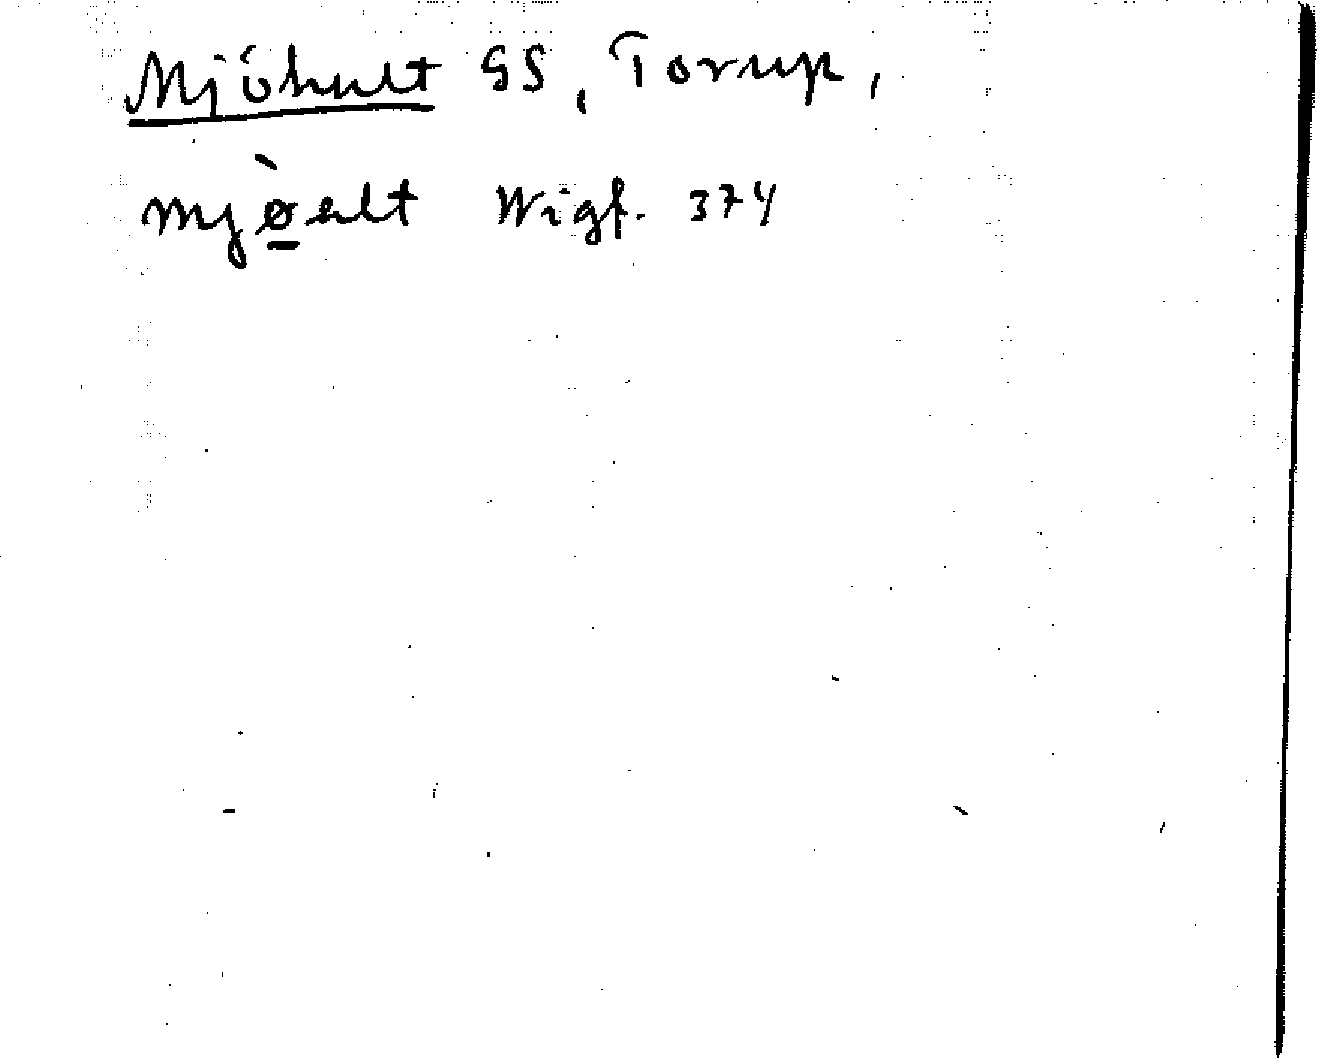 Mjöhult GS, Torup,
mjø̲̀ƨlt Wigf. 374